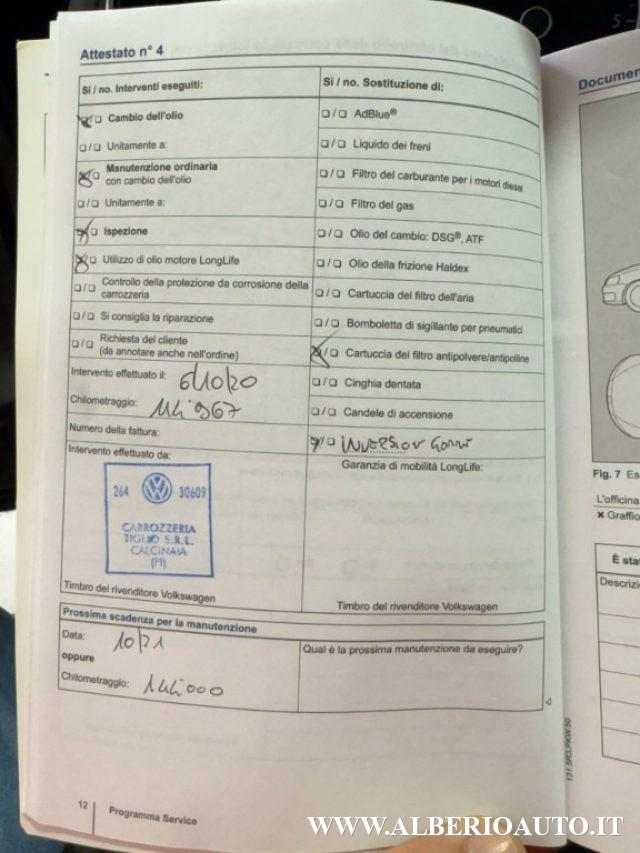 Attestato n° 4
Si / no. Interventi eseguiti:
❑/❑ Cambio dell'olio
❑/❑ Unitamente a:
❑/❑ Manutenzione ordinaria
con cambio dell'olio
❑/❑ Unitamente a:
❑/❑ Ispezione
❑/❑ Utilizzo di olio motore LongLife
❑/❑ Controllo della protezione da corrosione della
carrozzeria
❑/❑ Si consiglia la riparazione
❑/❑ Richiesta del cliente
(da annotare anche nell'ordine)
Intervento effettuato il: 6/10/20
Chilometraggio:
Numero della fattura:
Intervento effettuato da:
264 30609
CARROZZERIA
TIGLIO S.R.L.
CALCINAIA
(PI)
Timbro del rivenditore Volkswagen
Si / no. Sostituzione di:
❑/❑ AdBlue®
❑/❑ Liquido dei freni
❑/❑ Filtro del carburante per i motori diesel
❑/❑ Filtro del gas
❑/❑ Olio del cambio: DSG®, ATF
❑/❑ Olio della frizione Haldex
❑/❑ Cartuccia del filtro dell'aria
❑/❑ Bomboletta di sigillante per pneumatici
❑/❑ Cartuccia del filtro antipolvere/antipolline
❑/❑ Cinghia dentata
❑/❑ Candele di accensione
❑/❑ INVERSION
Garanzia di mobilità LongLife:
Timbro del rivenditore Volkswagen
Prossima scadenza per la manutenzione
Data: 10/21
oppure
Chilometraggio:
Qual è la prossima manutenzione da eseguire?
131.5R3.PKW.50
12 Programma Service
Documen
Fig. 7 Es
L'officina
✖ Graffio
È stat
Descrizi
WWW.ALBERIOAUTO.IT